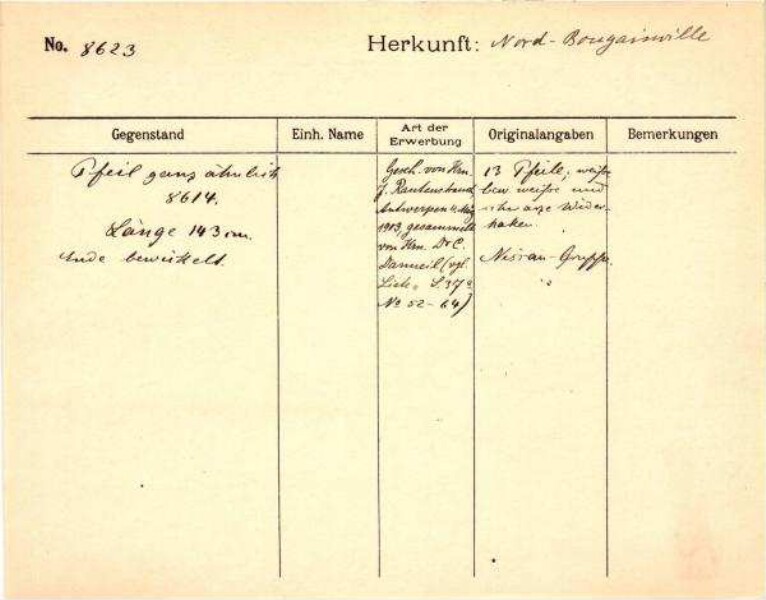 No. 8623
Herkunft: Nord-Bougainville
Gegenstand
Einh. Name
Art der Erwerbung
Originalangaben
Bemerkungen
Pfeil ganz ähnlich
8614.
Länge 143 cm.
Ende bewickelt.
Gesch. von Hrn.
J. Rautenstrauch
Antwerpen
1903, gesammelt
von Hrn. Dr C.
Danneil (vgl.
Liste S. 37
No 52-64)
13 Pfeile;
ben weisse und
schwarze Wider-
haken.
Nissan-Gruppe.